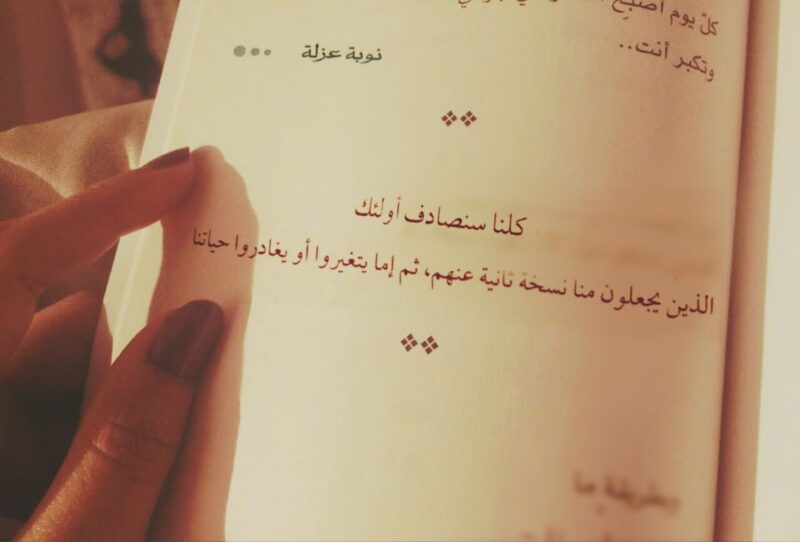 كلّ يوم أصنّع
وتكبر أنت..
نوبة عزلة
كلنا سنصادف أولئك
الذين يجعلون منا نسخة ثانية عنهم، ثم إما يتغيروا أو يغادروا حياتنا